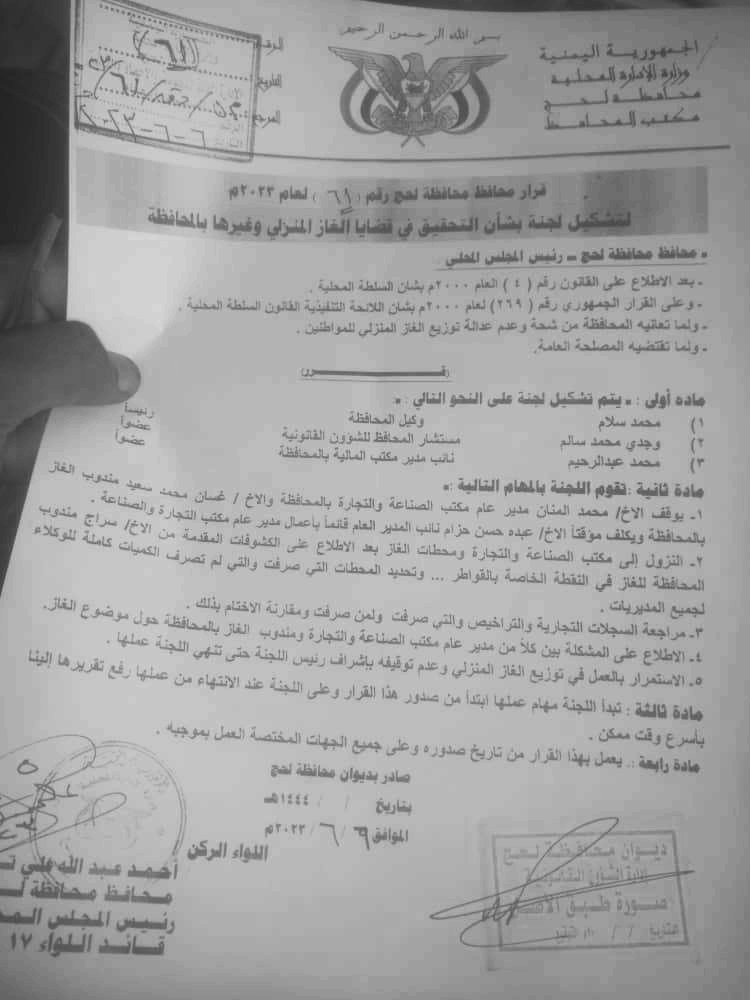 بسم الله الرحمن الرحيم
الجمهورية اليمنية
وزارة الإدارة المحلية
محافظة لحج
مكتب المحافظ
الرقم (٦١)
التاريخ
المرجع
٦-٦-٢٠٢٣
قرار محافظ محافظة لحج رقم (٦١) لعام ٢٠٢٣م
لتشكيل لجنة بشأن التحقيق في قضايا الغاز المنزلي وغيرها بالمحافظة
ـ محافظ محافظة لحج ـ رئيس المجلس المحلي
ـ بعد الاطلاع على القانون رقم ( ٤ ) العام ٢٠٠٠م بشان السلطة المحلية .
ـ وعلى القرار الجمهوري رقم ( ٢٦٩) لعام ٢٠٠٠م بشان اللائحة التنفيذية القانون السلطة المحلية .
ـ ولما تعانيه المحافظة من شحة وعدم عدالة توزيع الغاز المنزلي للمواطنين .
ـ ولما تقتضيه المصلحة العامة.
(قــرر)
ماده أولى : ـ يتم تشكيل لجنة على النحو التالي :ـ
١) محمد سلام وكيل المحافظة رئيساً
٢) وجدي محمد سالم مستشار المحافظ للشؤون القانونية عضواً
٣) محمد عبدالرحيم نائب مدير مكتب المالية بالمحافظة عضواً
مادة ثانية :تقوم اللجنة بالمهام التالية :ـ
١ـ يوقف الاخ/ محمد المنان مدير عام مكتب الصناعة والتجارة بالمحافظة والاخ / غسان محمد سعيد مندوب الغاز
بالمحافظة ويكلف مؤقتاً الاخ/ عبده حسن حزام نائب المدير العام قائماً بأعمال مدير عام مكتب التجارة والصناعة .
٢ـ النزول إلى مكتب الصناعة والتجارة ومحطات الغاز بعد الاطلاع على الكشوفات المقدمة من الاخ/ سراج مندوب
المحافظة للغاز في النقطة الخاصة بالقواطر ... وتحديد المحطات التي صرفت والتي لم تصرف الكميات كاملة للوكلاء
لجميع المديريات .
٣ـ مراجعة السجلات التجارية والتراخيص والتي صرفت ولمن صرفت ومقارنة الاختام بذلك .
٤ـ الاطلاع على المشكلة بين كلاً من مدير عام مكتب الصناعة والتجارة ومندوب الغاز بالمحافظة حول موضوع الغاز.
٥ـ الاستمرار بالعمل في توزيع الغاز المنزلي وعدم توقيفه بإشراف رئيس اللجنة حتى تنهي اللجنة عملها .
مادة ثالثة : تبدأ اللجنة مهام عملها ابتدأ من صدور هذا القرار وعلى اللجنة عند الانتهاء من عملها رفع تقريرها إلينا
بأسرع وقت ممكن .
مادة رابعة :. يعمل بهذا القرار من تاريخ صدوره وعلى جميع الجهات المختصة العمل بموجبه .
صادر بديوان محافظة لحج
بتاريخ / / ١٤٤٤هـ
الموافق ٦/ ٦ / ٢٠٢٣م
اللواء الركن
أحمد عبد الله علي
محافظ محافظة
رئيس المجلس
قائد اللواء ١٧
ديوان محافظة لحج
إدارة الشؤون القانونية
صورة طبق الأصل
التاريخ / /